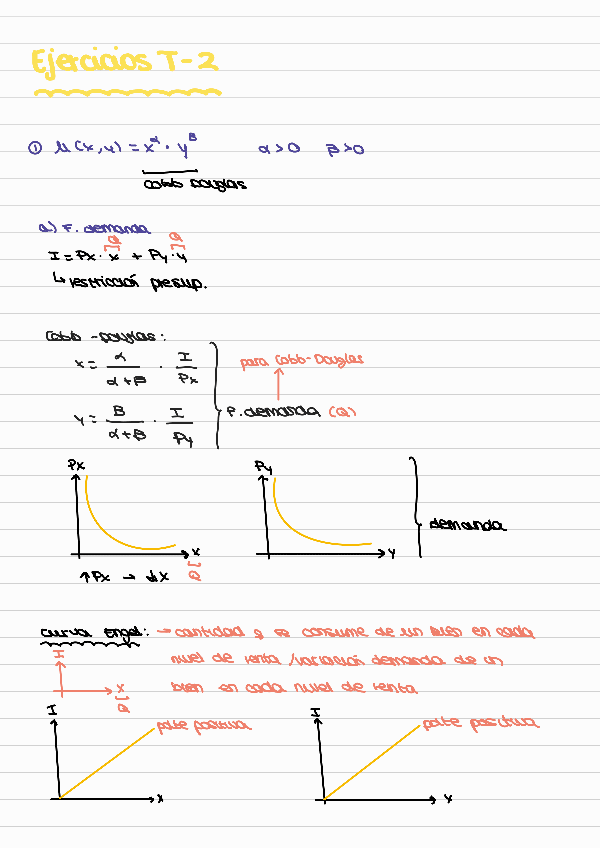 Ejercicios T-2
① U(x,y) = x^α · y^β α>0 β>0
Cobb Douglas
a) F. demanda
Q Q
I = Px · x + Py · y
↳ restricción presup.
Cobb-Douglas:
x = α/(α+β) · I/Px
para Cobb-Douglas
y = B/(α+β) · I/Py
F. demanda (Q)
Px Py
demanda
x y
↑Px → ↓x Q
curva engel: → cantidad q se consume de un bien en cada
nivel de renta / variación demanda de un
bien en cada nivel de renta
H
x
Q
I parte positiva I parte positiva
x x